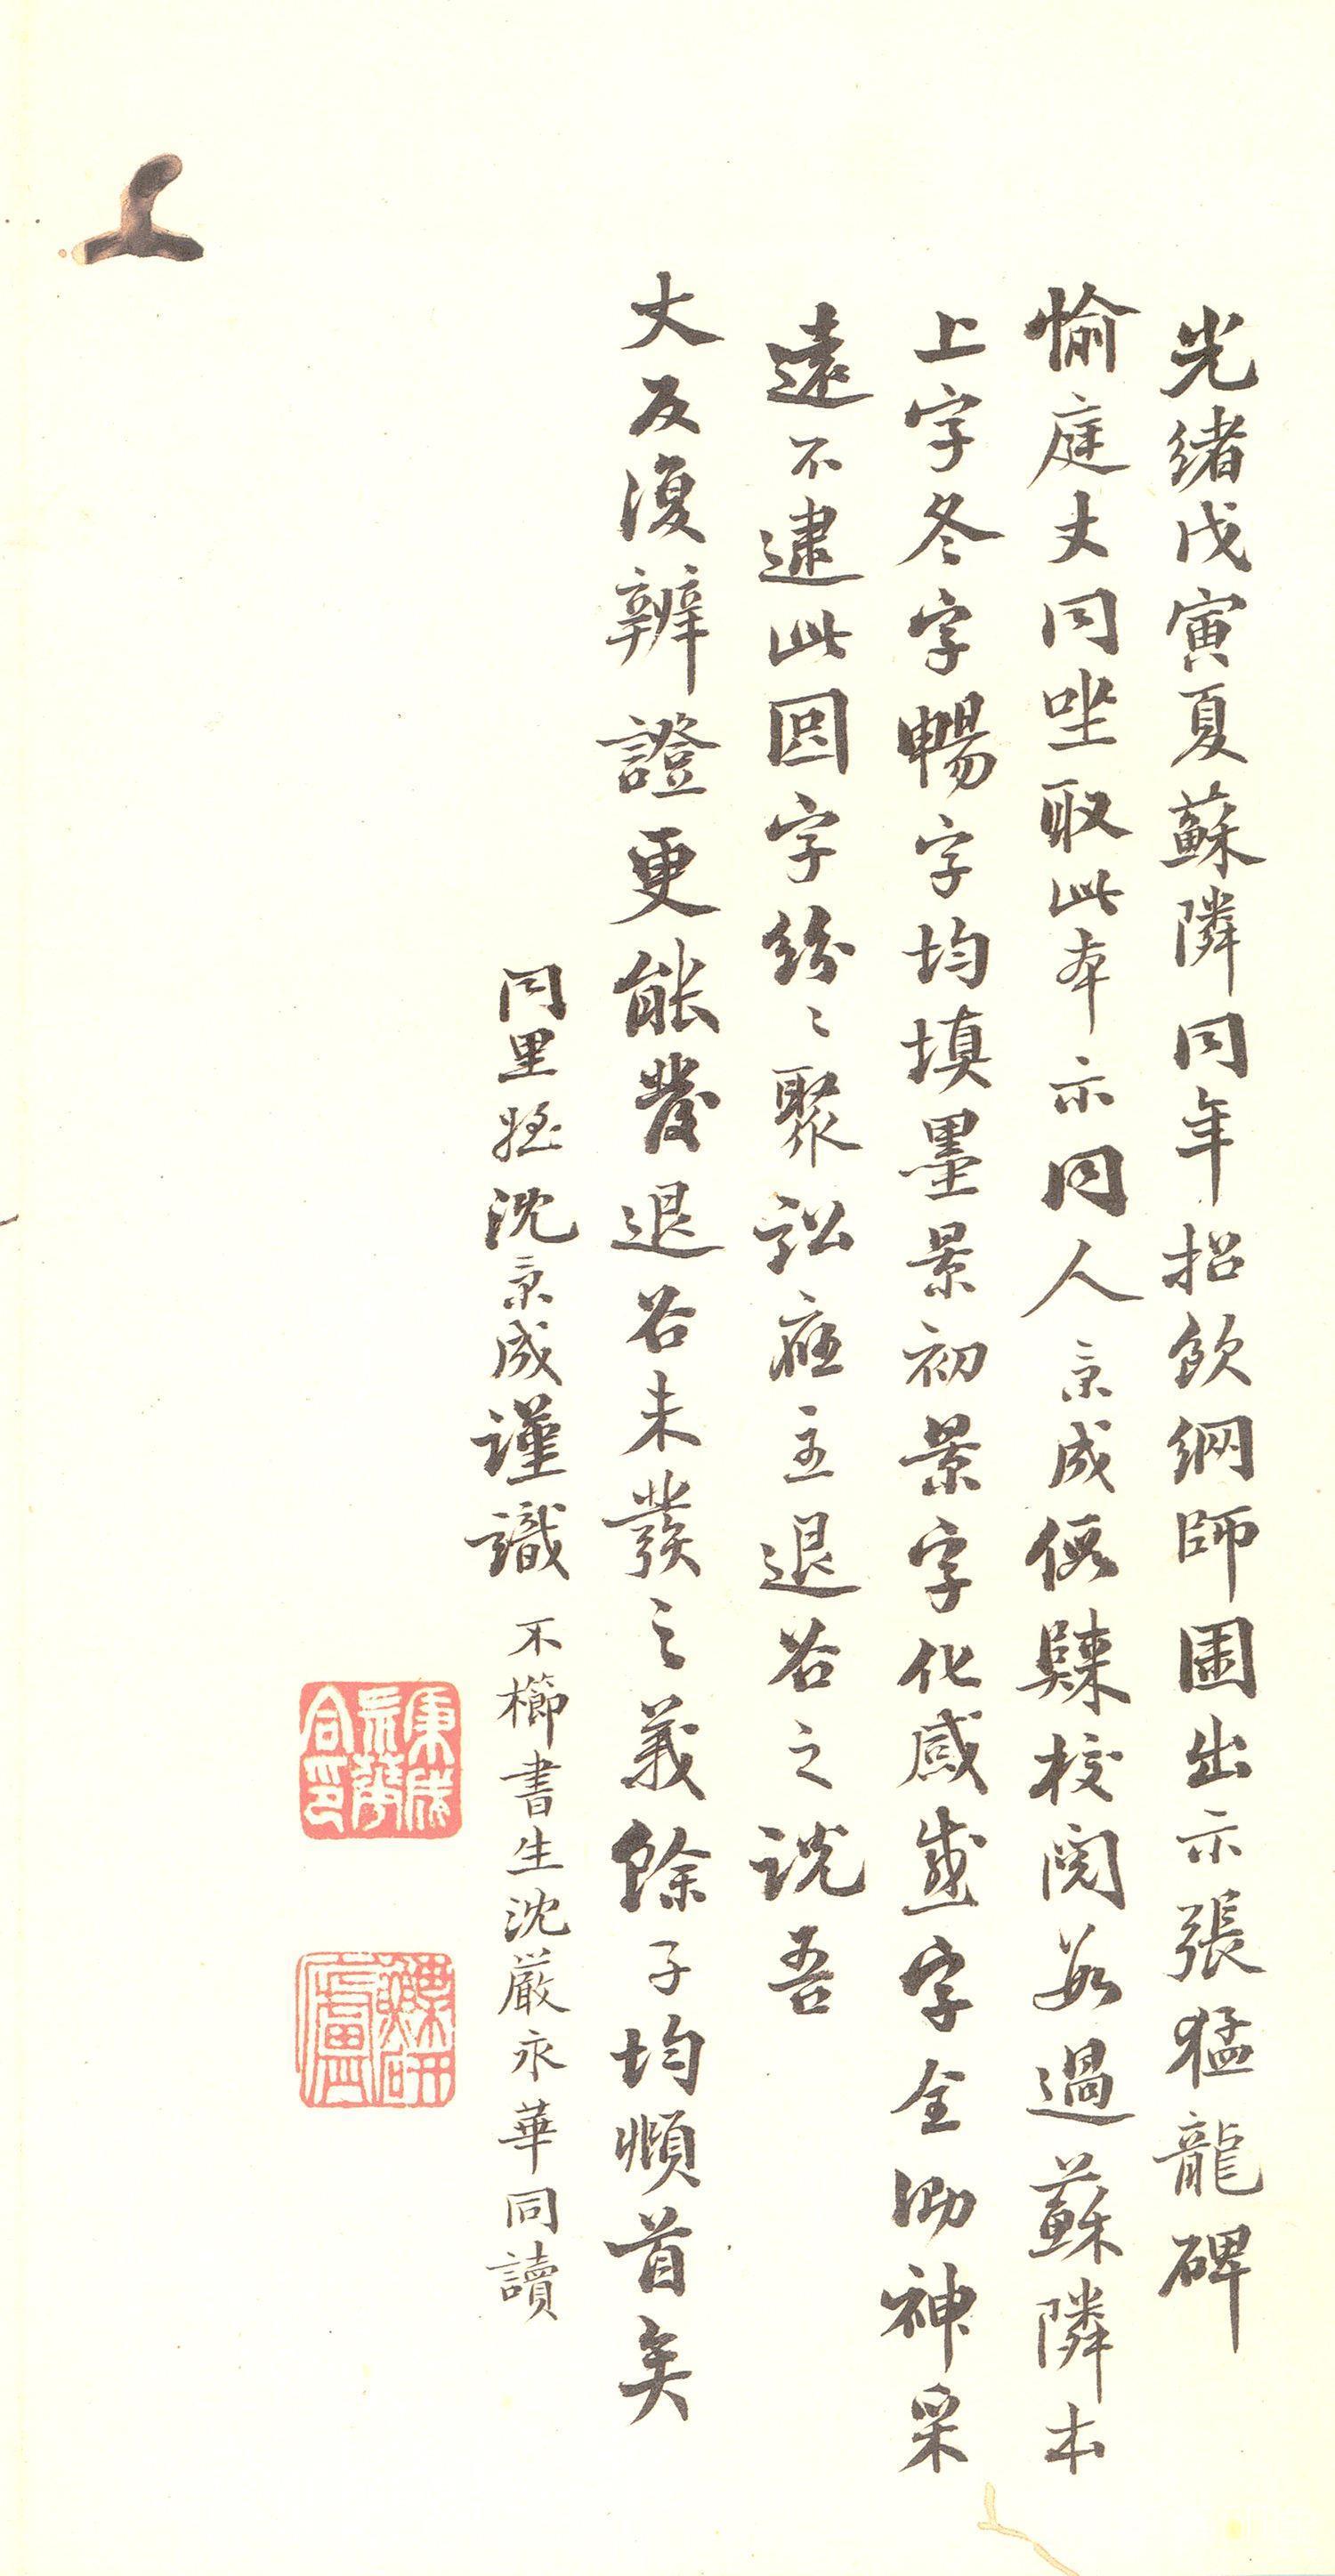 光緒戊寅夏蘇隣同年招飲網師園出示張猛龍碑
愉庭丈同坐取此本示同人秉成假歸校閱數過蘇隣本
上字冬字暢字均填墨景初景字化感盛字全泐神采
遠不逮此因字紛〻聚訟庭主退谷之說吾
丈反復辨證更能發退谷未發之義餘子均頫首矣
同里 沈秉成謹識 不櫛書生沈嚴永華同讀
秉成永華合印
鰈硯廬